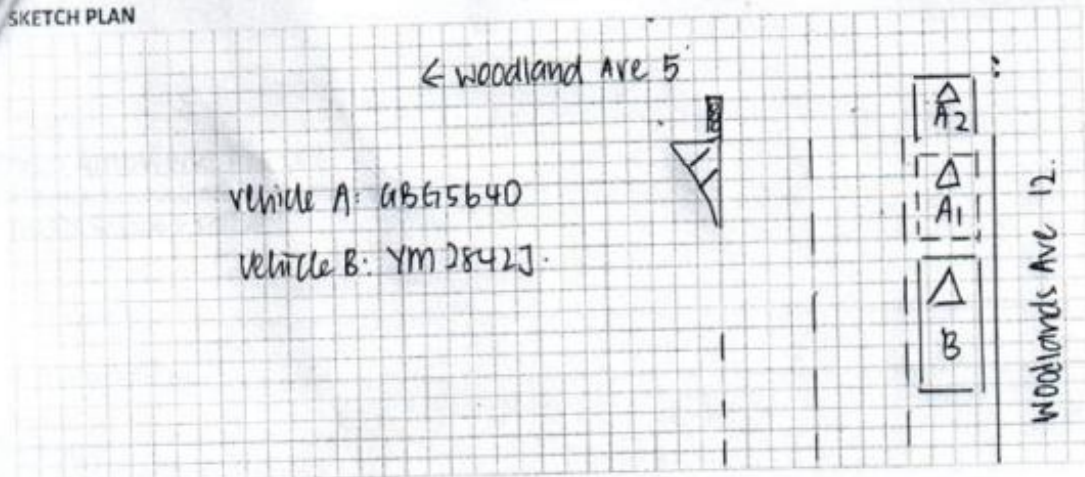 SKETCH PLAN
← Woodland Ave 5
A2
A1
Vehicle A: GBG5640
Vehicle B: YM2842J.
B
Woodlands Ave 12.